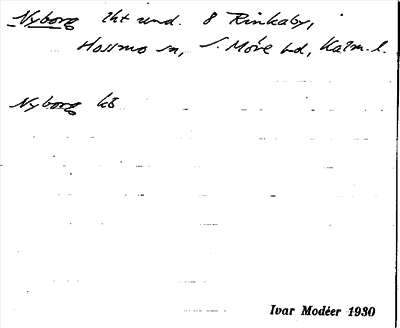 Nyborg lht und. 8 Rinkaby,
Hossmo sn, S. Möre hd, Kalm. l.
Nyborg kb
Ivar Modéer 1930